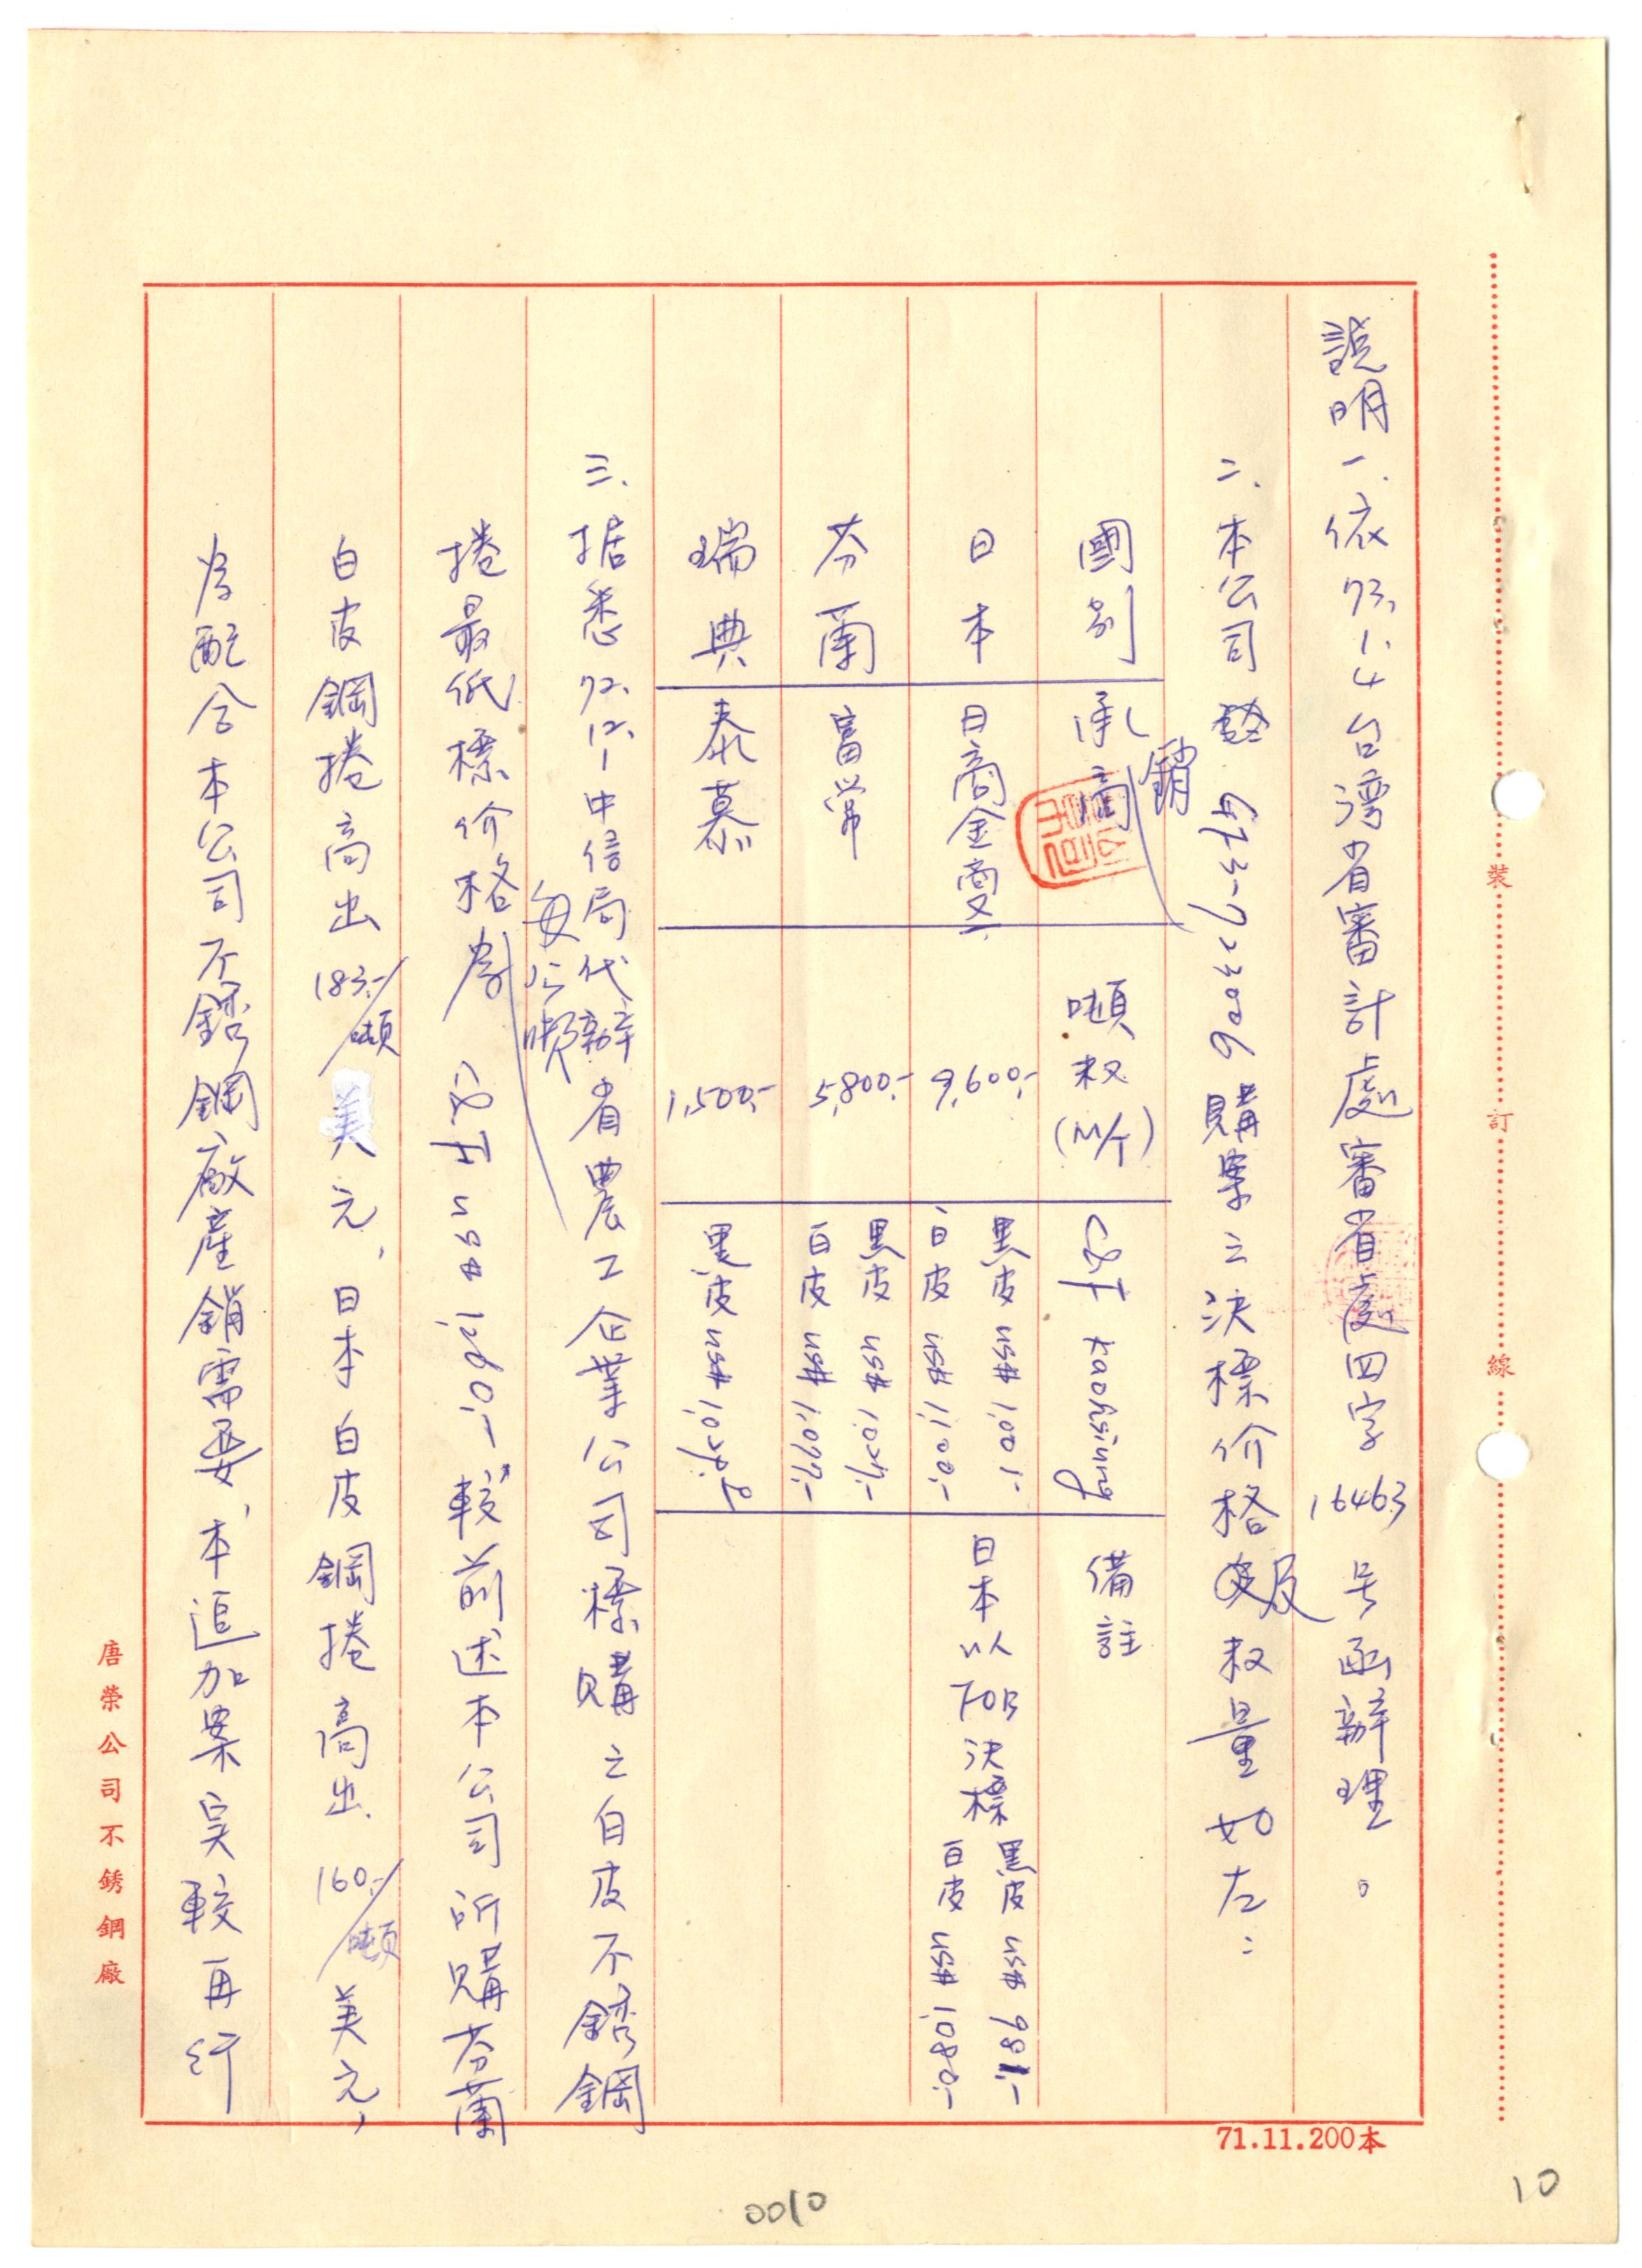 說明一、依73.1.4台灣省審計處審省處四字16463号函辦理。
二、本公司購案之決標价格及数量如左：
國別 承銷商 噸数(M/T) C&F Kaohsiung 備註
日本 日商金商 9,600.- 黑皮US$1,001.- 白皮US$1,100.- 日本以FOB決標 黑皮US$981.- 白皮US$1,080.-
芬蘭 富常 5,800.- 黑皮US$ 白皮US$1,077.-
瑞典 泰慕 1,500.- 黑皮US$
三、据悉72.12.1中信局代辦省農工企業公司標購之白皮不銹鋼
捲最低標价格為每公噸C&F US$1,260.-較前述本公司所購芬蘭
白皮鋼捲高出183.-/噸美元，日本白皮鋼捲高出160.-/噸美元，
為配合本公司不銹鋼廠產銷需要，本追加案吴較再行
裝訂線
唐榮公司不銹鋼廠
71.11.200本
0010
10